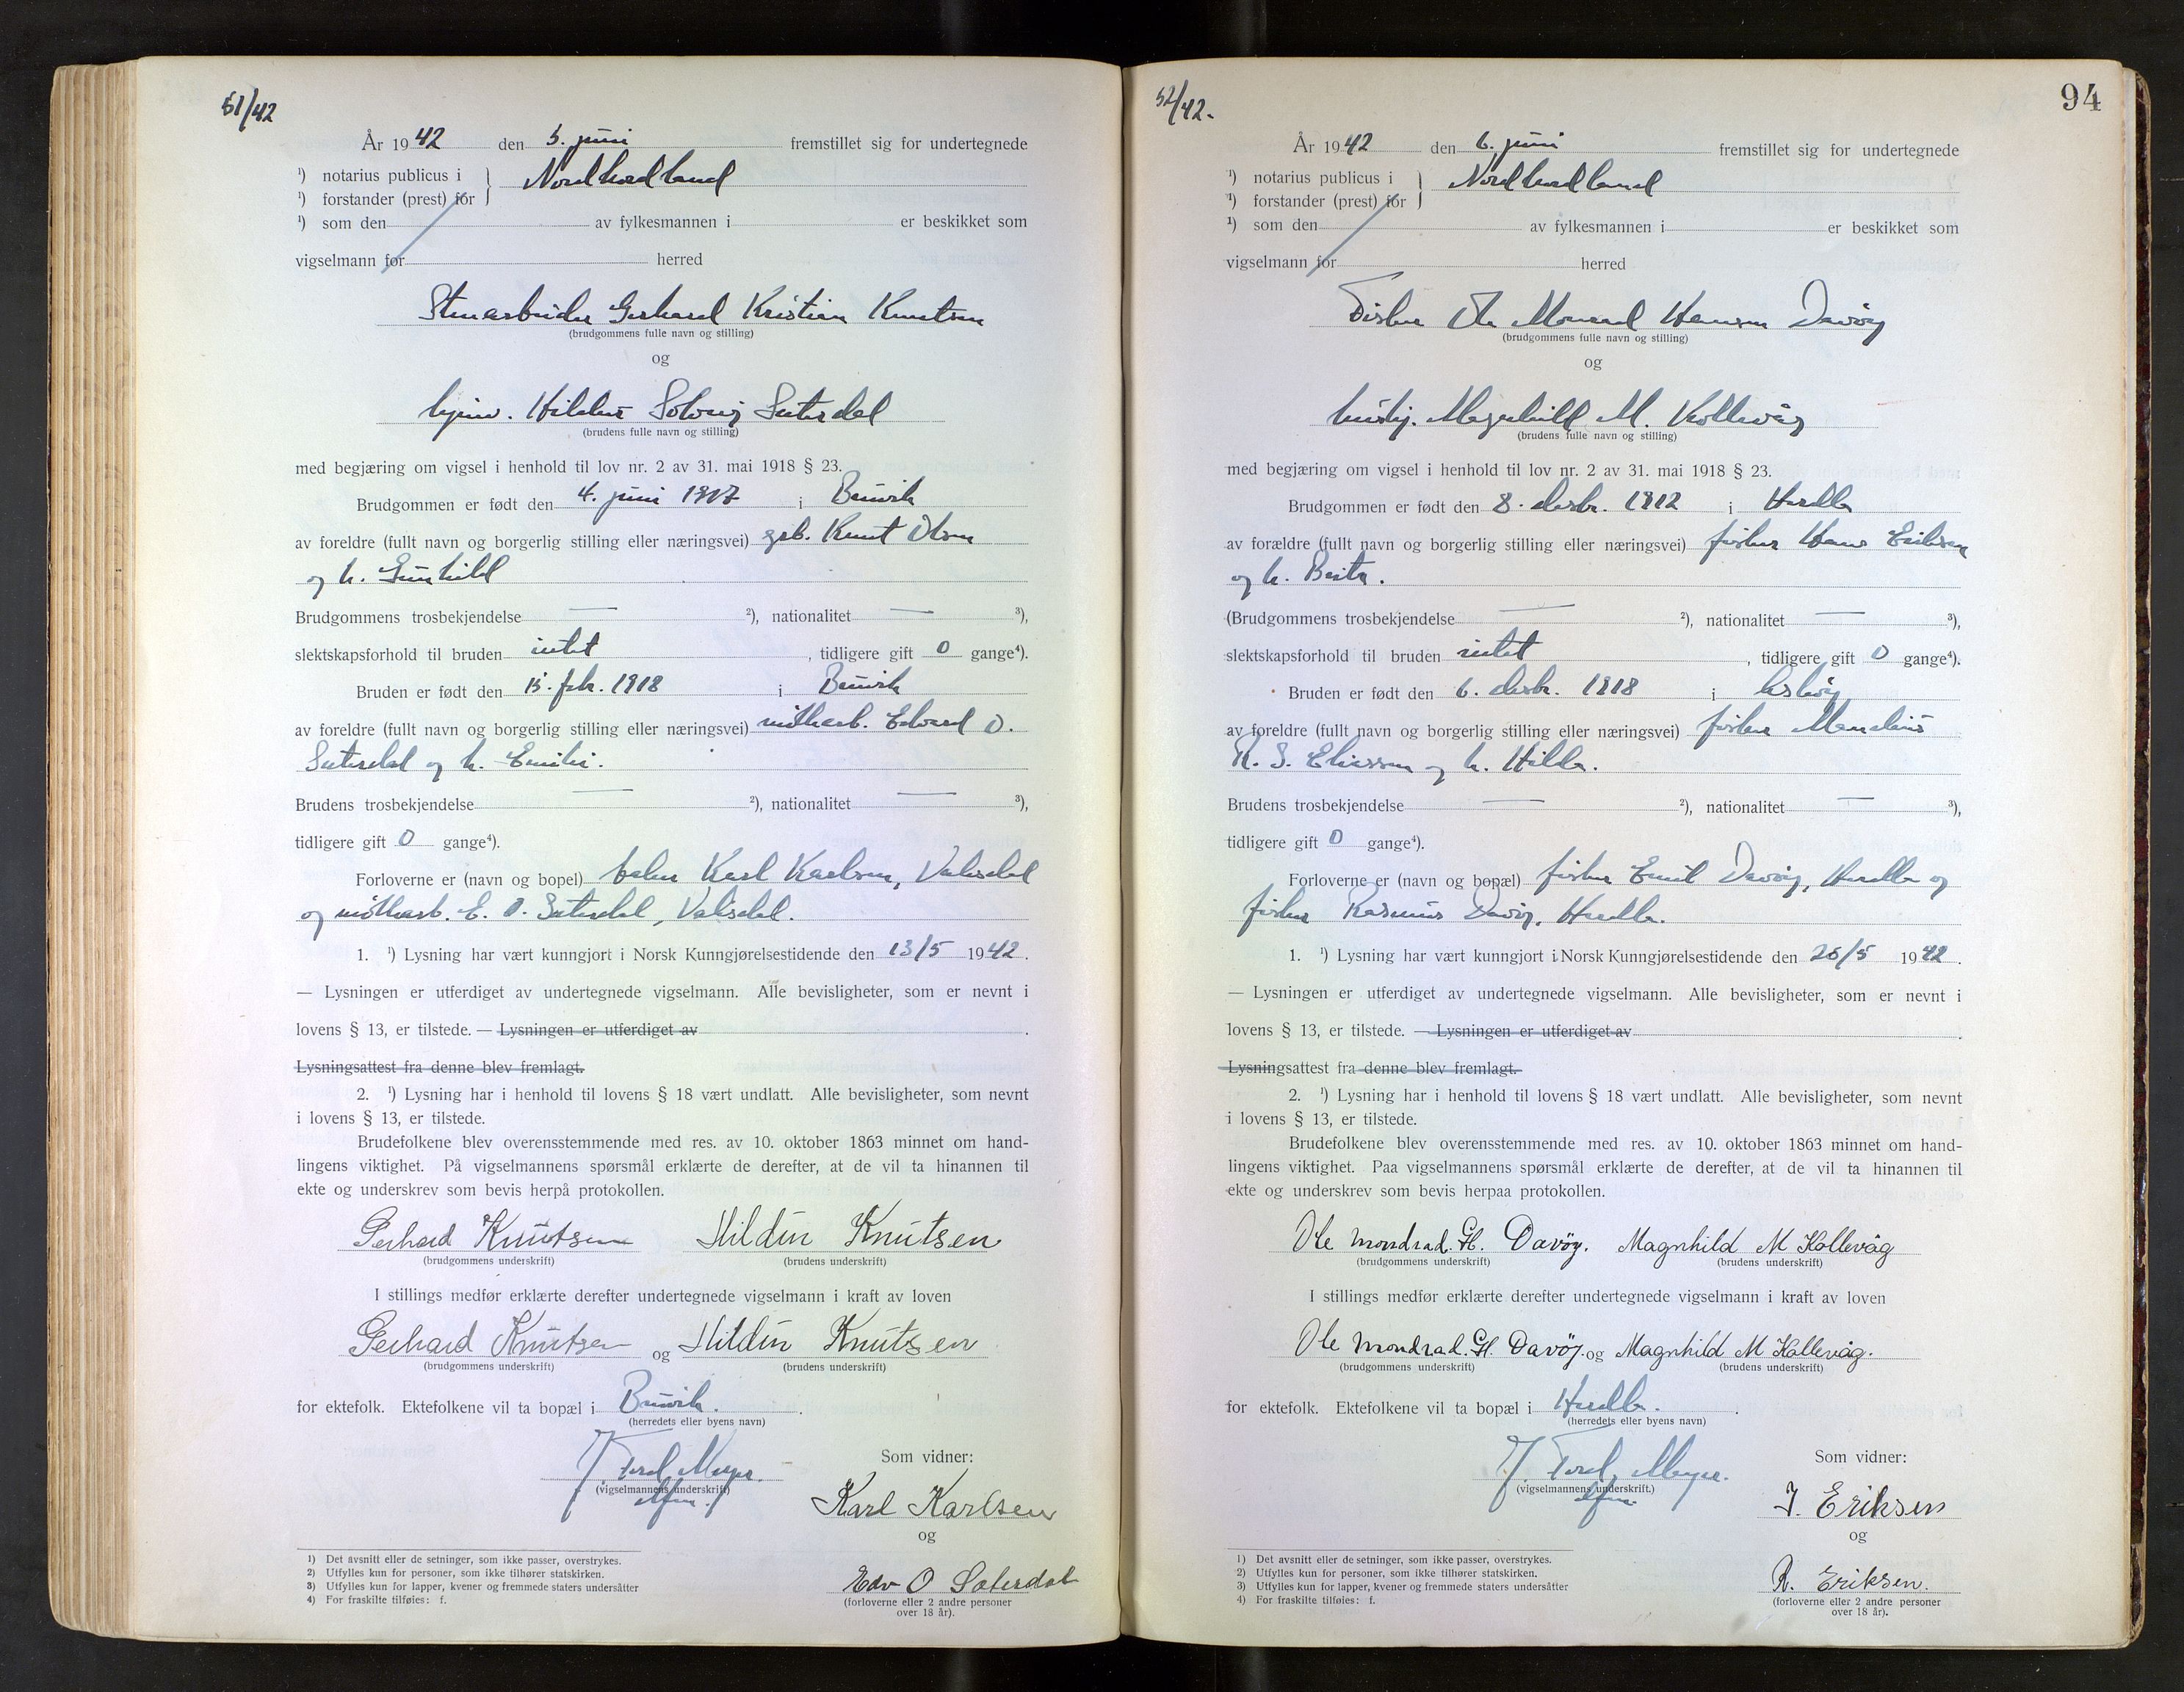 51/42
År 1942 den 5. juni fremstillet sig for undertegnede
¹) notarius publicus i } Nordhordland
¹) forstander (prest) for
¹) som den av fylkesmannen i er beskikket som
vigselmann for herred
Stenarbeider Gerhard Kristian Knutsen
(brudgommens fulle navn og stilling)
og
hjemv. Hildur Solveig Sæterdal
(brudens fulle navn og stilling)
med begjæring om vigsel i henhold til lov nr. 2 av 31. mai 1918 § 23.
Brudgommen er født den 4. juni 1917 i Bruvik
av foreldre (fullt navn og borgerlig stilling eller næringsvei) grb. Knut Olsen
og h. Gunhild
Brudgommens trosbekjendelse — ²), nationalitet — ³),
slektskapsforhold til bruden intet, tidligere gift 0 gange⁴).
Bruden er født den 15. feb. 1918 i Bruvik
av foreldre (fullt navn og borgerlig stilling eller næringsvei) Edvard O.
Sæterdal og h. Emilie.
Brudens trosbekjendelse — ²), nationalitet — ³),
tidligere gift 0 gange⁴).
Forloverne er (navn og bopel) Karl Karlsen, Vaksdal
og E. O. Sæterdal, Vaksdal.
1. ¹) Lysning har vært kunngjort i Norsk Kunngjørelsestidende den 13/5 1942.
— Lysningen er utferdiget av undertegnede vigselmann. Alle bevisligheter, som er nevnt i
lovens § 13, er tilstede. — Lysningen er utferdiget av .
Lysningsattest fra denne blev fremlagt.
2. ¹) Lysning har i henhold til lovens § 18 vært undlatt. Alle bevisligheter, som nevnt
i lovens § 13, er tilstede.
Brudefolkene blev overensstemmende med res. av 10. oktober 1863 minnet om hand-
lingens viktighet. På vigselmannens spørsmål erklærte de derefter, at de vil ta hinannen til
ekte og underskrev som bevis herpå protokollen.
Gerhard Knutsen Hildur Knutsen
(brudgommens underskrift) (brudens underskrift)
I stillings medfør erklærte derefter undertegnede vigselmann i kraft av loven
Gerhard Knutsen og Hildur Knutsen
(brudgommens underskrift) (brudens underskrift)
for ektefolk. Ektefolkene vil ta bopæl i Bruvik.
(herredets eller byens navn)
Meyer.
(vigselmannens underskrift)
Som vidner:
Karl Karlsen
og
Edv O Sæterdal
(forloverne eller 2 andre personer
over 18 år).
1) Det avsnitt eller de setninger, som ikke passer, overstrykes.
2) Utfylles kun for personer, som ikke tilhører statskirken.
3) Utfylles kun for lapper, kvener og fremmede staters undersåtter
4) For fraskilte tilføies: f.
94
52/42.
År 1942 den 6. juni fremstillet sig for undertegnede
¹) notarius publicus i } Nordhordland
¹) forstander (prest) for
¹) som den av fylkesmannen i er beskikket som
vigselmann for herred
Fisker Ole Monrad Hansen Davøy
(brudgommens fulle navn og stilling)
og
hushj. Magnhild M. Kollevåg
(brudens fulle navn og stilling)
med begjæring om vigsel i henhold til lov nr. 2 av 31. mai 1918 § 23.
Brudgommen er født den 8. desbr. 1912 i Herdla
av forældre (fullt navn og borgerlig stilling eller næringsvei) fisker Hans Eriksen
og h. Berta.
(Brudgommens trosbekjendelse — ²), nationalitet — ³),
slektskapsforhold til bruden intet, tidligere gift 0 gange⁴).
Bruden er født den 6. desbr. 1918 i Askøy
av foreldre (fullt navn og borgerlig stilling eller næringsvei) fisker Mandius
R. S. Eliassen og h. Hilda.
Brudens trosbekjendelse — ²), nationalitet — ³),
tidligere gift 0 gange⁴).
Forloverne er (navn og bopæl) fisker Emil Davøy, Herdla og
fisker Rasmus Davøy, Herdla.
1. ¹) Lysning har vært kunngjort i Norsk Kunngjørelsestidende den 26/5 1942.
— Lysningen er utferdiget av undertegnede vigselmann. Alle bevisligheter, som er nevnt i
lovens § 13, er tilstede. — Lysningen er utferdiget av .
Lysningsattest fra denne blev fremlagt.
2. ¹) Lysning har i henhold til lovens § 18 vært undlatt. Alle bevisligheter, som nevnt
i lovens § 13, er tilstede.
Brudefolkene blev overensstemmende med res. av 10. oktober 1863 minnet om hand-
lingens viktighet. Paa vigselmannens spørsmål erklærte de derefter, at de vil ta hinannen til
ekte og underskrev som bevis herpaa protokollen.
Ole Mondrad. H. Davöy. Magnhild M Kollevåg
(brudgommens underskrift) (brudens underskrift)
I stillings medfør erklærte derefter undertegnede vigselmann i kraft av loven
Ole Mondrad. H. Davöy. og Magnhild M Kollevåg.
(brudgommens underskrift) (brudens underskrift)
for ektefolk. Ektefolkene vil ta bopæl i Herdla.
(herredets eller byens navn)
Meyer.
(vigselmannens underskrift.)
Som vidner:
J. Eriksen
og
R. Eriksen.
(forloverne eller 2 andre personer
over 18 år).
1) Det avsnitt eller de setninger, som ikke passer, overstrykes.
2) Utfylles kun for personer, som ikke tilhører statskirken.
3) Utfylles kun for lapper, kvener og fremmede staters undersåtter
4) For fraskilte tilføies: f.